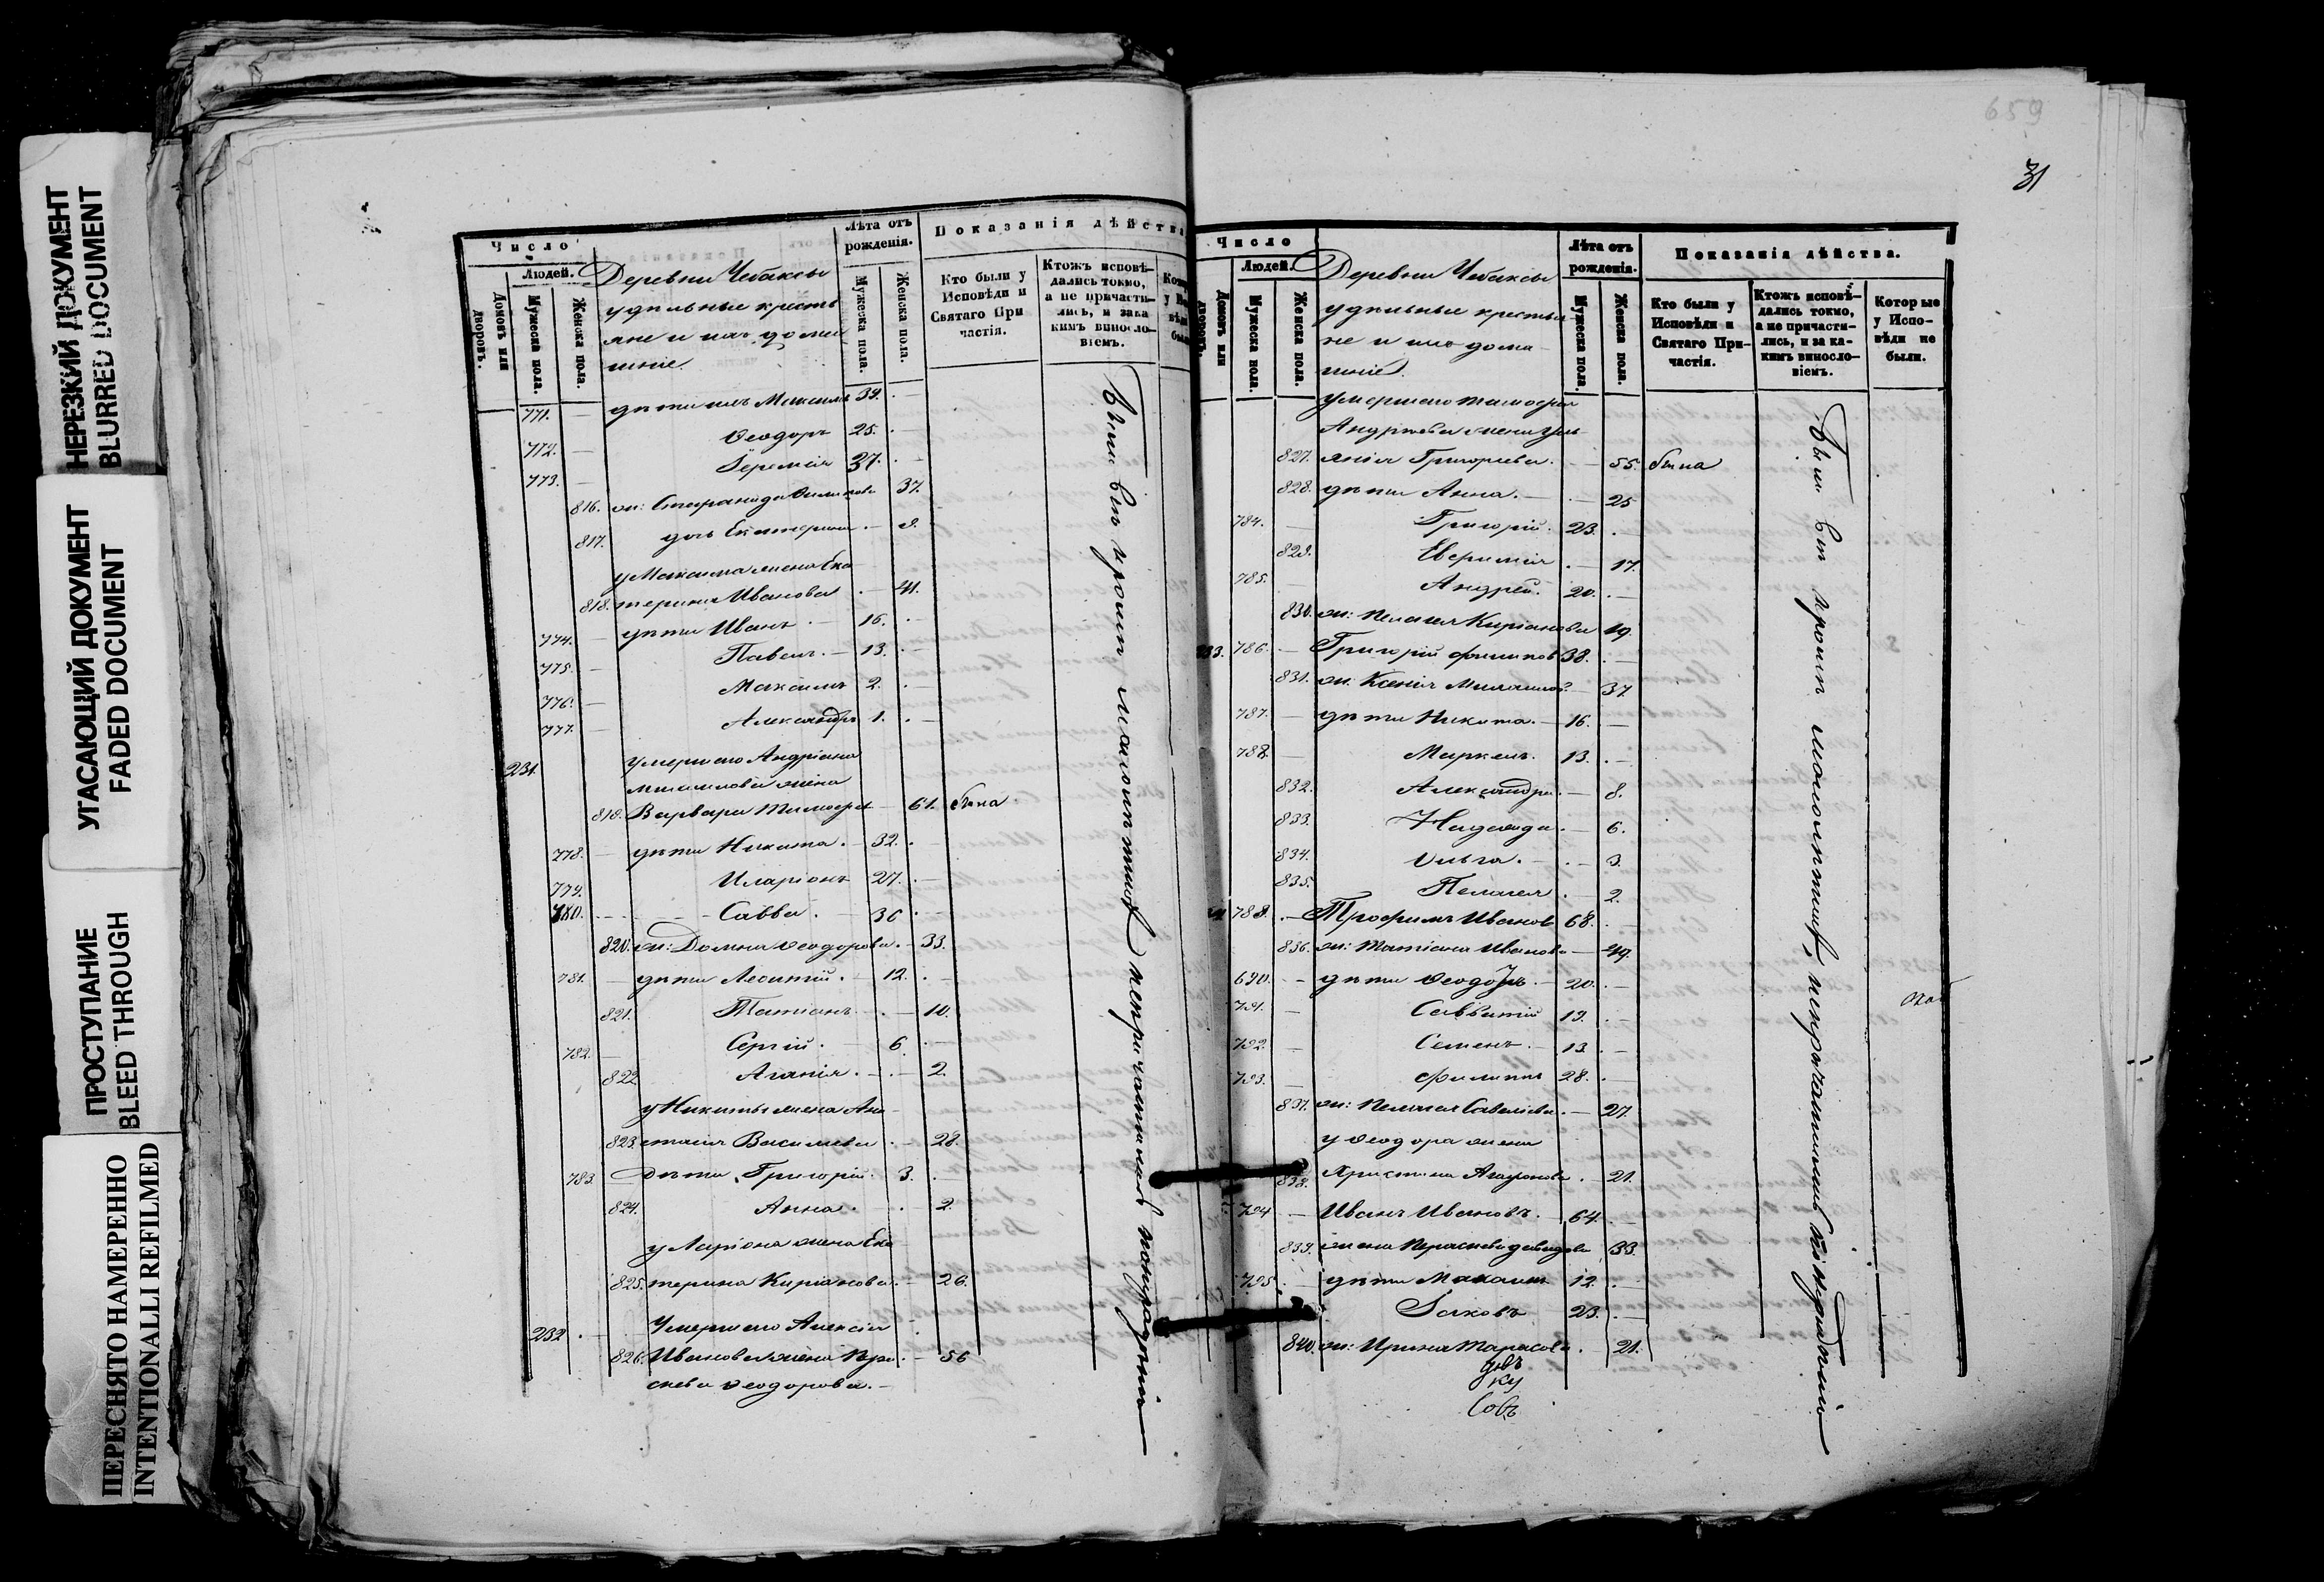 НЕРЕЗКИЙ ДОКУМЕНТ
BLURRED DOCUMENT
УГАСАЮЩИЙ ДОКУМЕНТ
FADED DOCUMENT
ПРОСТУПАНИЕ
BLEED THROUGH
ПЕРЕСНЯТО НАМЕРЕННО
INTENTIONALLI REFILMED
Число
Людей.
Домовъ или дворовъ.
Мужеска пола.
Женска пола.
Деревни Чебаксы
удѣльные кресть
яне и ихъ дома
шніе.
Лѣта отъ рожденія.
Мужеска пола.
Женска пола.
Показанія дѣйства
Кто были у Исповѣди и Святаго При частія.
Ктожъ исповѣ-дались токмо, а не причасти-лись, и зака кимъ виносло-віемъ.
771. — дѣти ихъ Максимъ 39. . —
772. — Ѳеодоръ 25. . —
773. — Іеремія 37. . —
816. ж: Степанида Филипова 37.
817. дочь Екатерина . — 9.
у Максима жена Ека
818. терина Иванова . — 41.
774. — дѣти Иванъ — 16. . —
775. — Павелъ . — 13. . —
776. — Максимъ 2. . —
777. — Александръ 1. . —
231. умершаго Андріана
жена
819. Варвара Тимофе — 61. была
778. — дѣти Никита . — 32. . —
779. Иларіонъ 27. . —
780. Савва . — 36 . —
820. ж: Домна Ѳеодорова . — 33.
781. — дѣти Леонтій . — 12. . —
821. Татіана . — 10.
782. — Сергій . 6. . —
822. Агапія . — . — 2.
у Никиты жена Ана
823. стасія Васильева . — 28.
783. — Дѣти Григорій . 3. . —
824. Анна . . — 2.
у Ларіона жена Ека
825. терина Киріанова . — 26.
232. Умершаго Алексія
826. Иванова жена Пра . — 56
скева Ѳеодорова . —
Были вси кромѣ малолѣтнихъ непричастныхъ
659
31
Число
Людей.
Домовъ или дворовъ.
Мужеска пола.
Женска пола.
Деревни Чебаксы
удѣльные крестья
не и ихъ дома
шніе.
Лѣта отъ рожденія.
Мужеска пола.
Женска пола.
Показанія дѣйства.
Кто были у Исповѣди и Святаго При-частія.
Ктожъ исповѣ-дались токмо, а не причасти-лись, и за ка-кимъ виносло-віемъ.
Которые у Испо-вѣди не были.
умершаго Тимофея
Андреева жена Уль
827. янія Григорьева . — 55. была
828. дѣти Анна . — . — 25
784. — Григорій . 23. . —
829. Евфимія . — 17.
785. — Андрей . 20. . —
830. ж: Пелагея Киріанова 19.
233. 786. — Григорій Филиповъ 38. . —
831. ж: Ксенія — 37.
787. — дѣти Никита . — 16. —
788. — Маркелъ . 13. . —
832. Александра . — 8.
833. Надежда . — 6.
834. Ольга . — . — 3.
835. Пелагея . — 2.
788. — Трофимъ Ивановъ 68. . —
836. ж: Татіана Иванова — 49.
690. — дѣти Ѳеодоръ . — 20. . —
791. — Савватій 19. . —
792. — Семенъ . — 13. —
793. — Филиппъ 28. . —
837. ж: Пелагея Савельева . — 27.
у Ѳеодора жена
838. Христина Агафонова . — 21.
794 — Иванъ Ивановъ . — 64. —
839. жена Параскева Давидова 33.
795. — дѣти Максимъ 12. . —
Іаковъ 23. . —
840. ж: Ирина Тарасова . 21.
Были вси кромѣ малолѣтнихъ, непричастныхъ